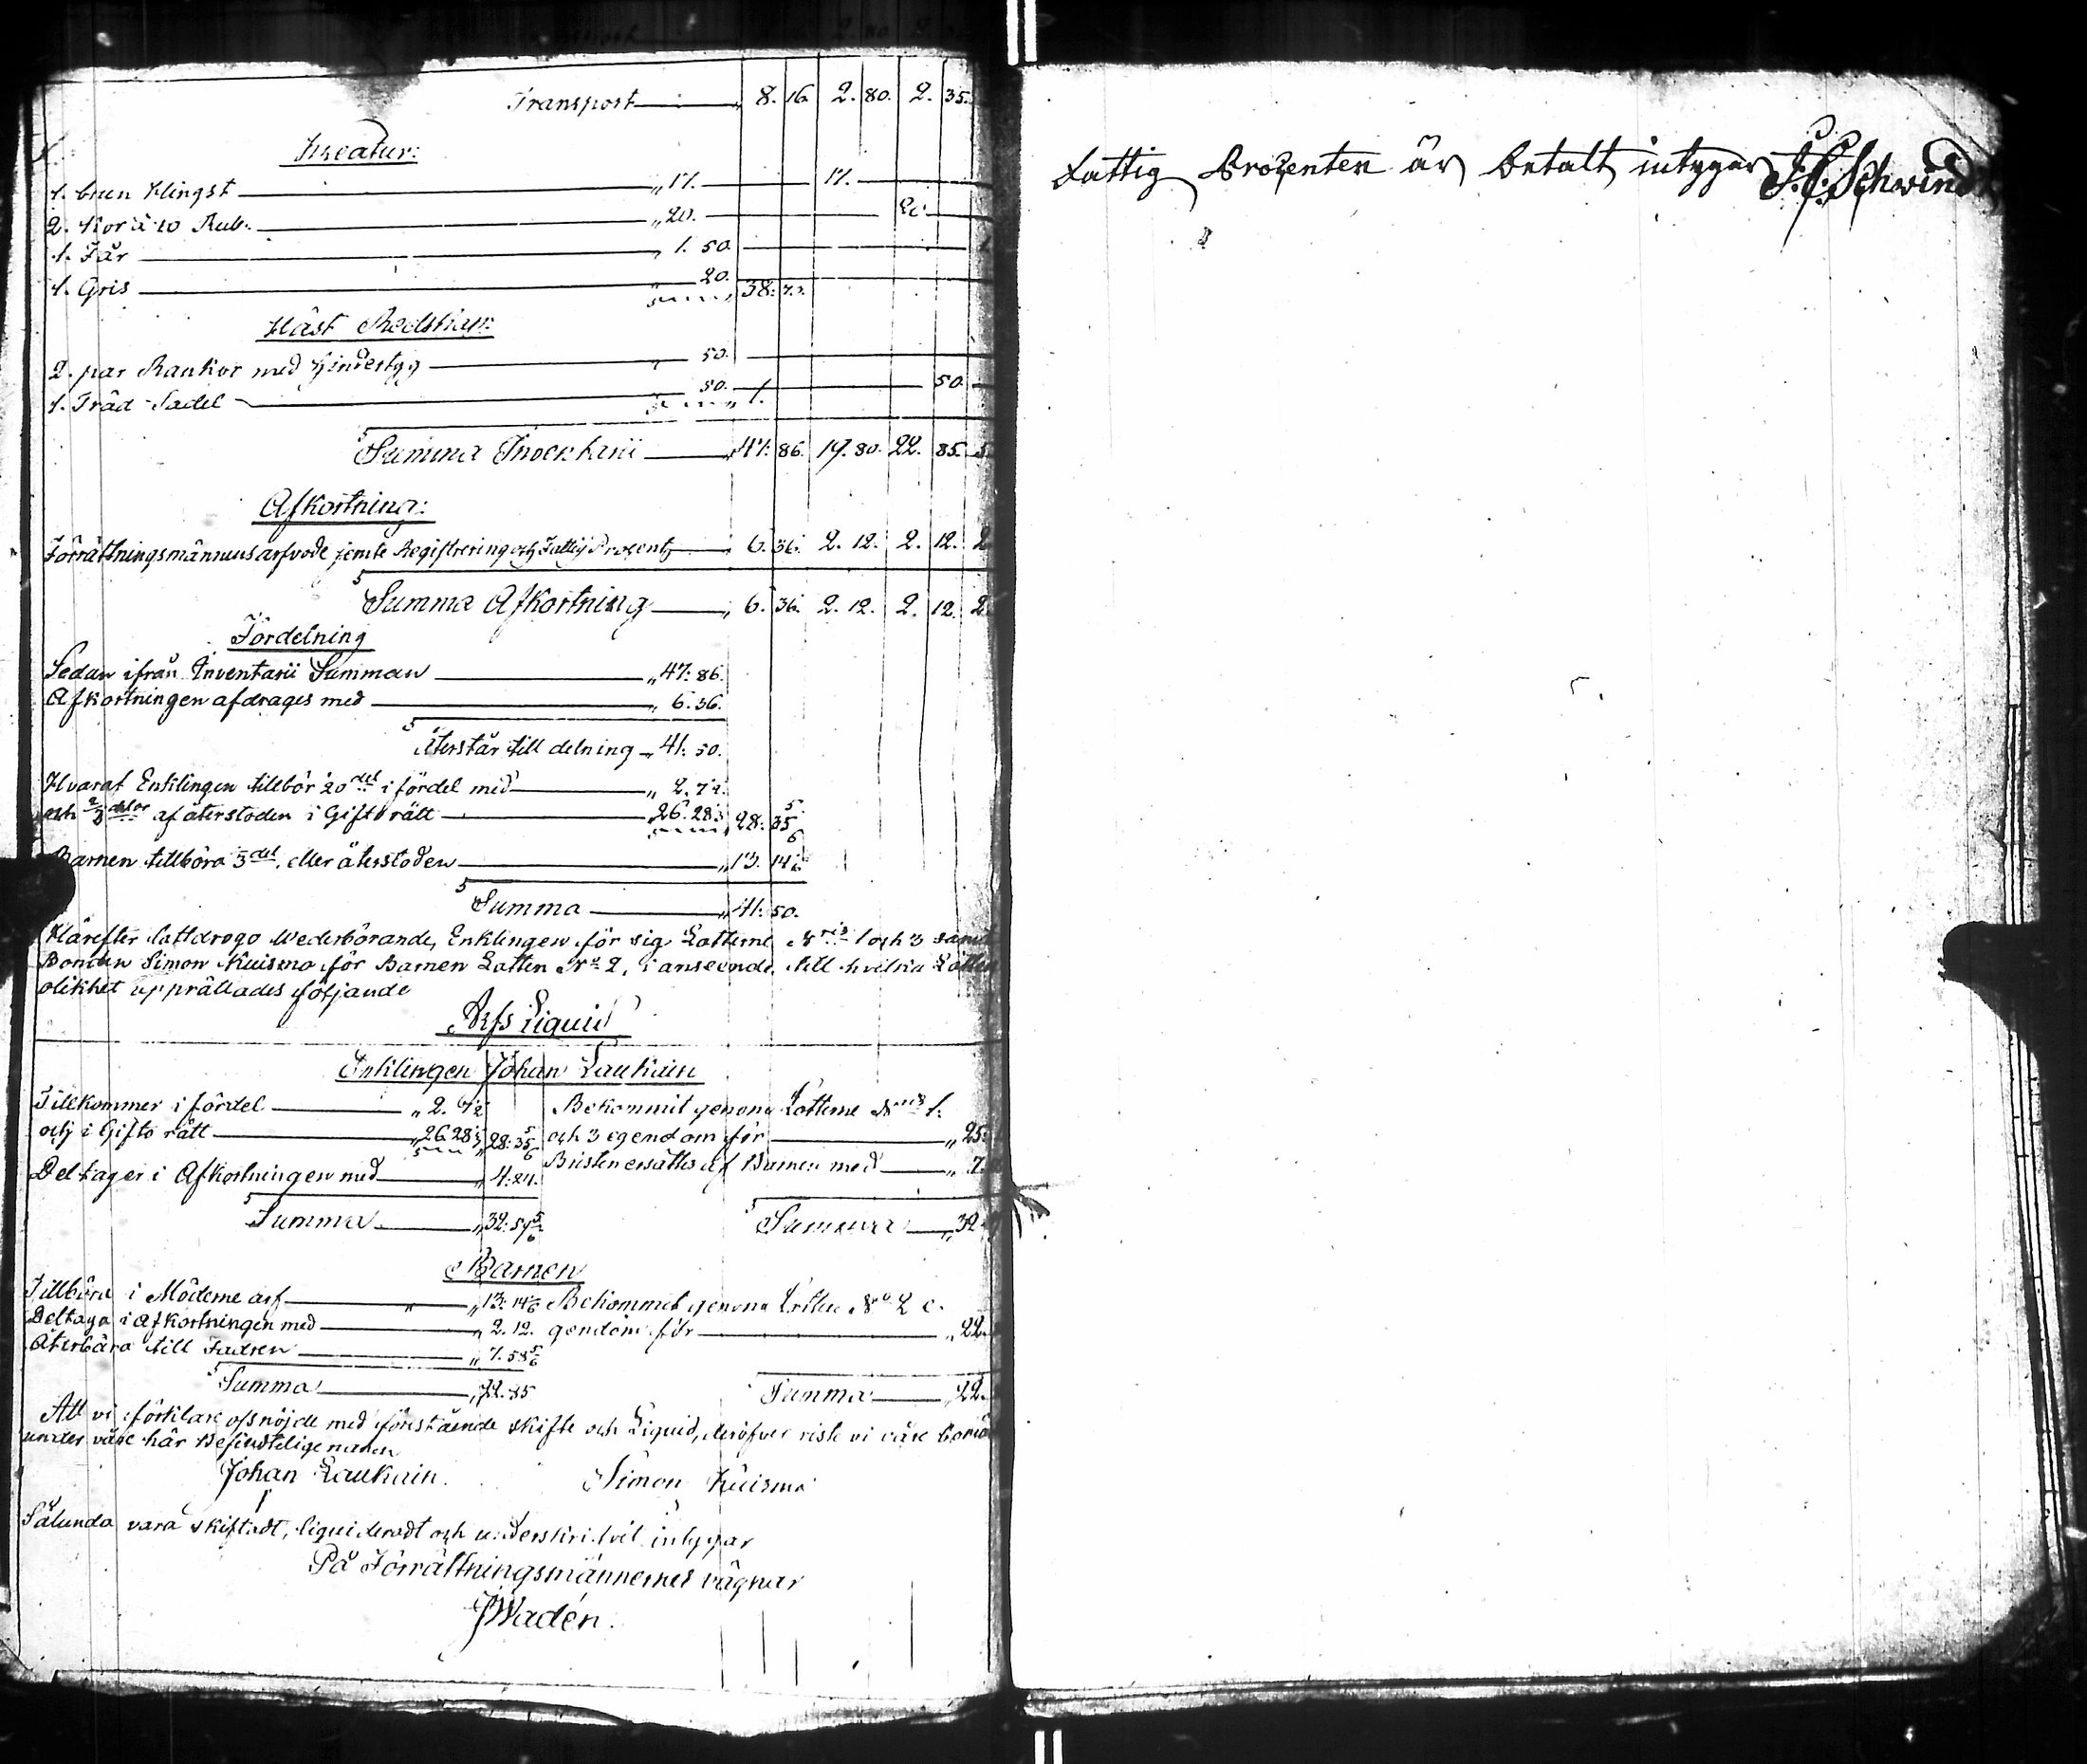 Transport „ 8. 16. 2. 80. 2. 35.
Kreatur:
1. brun Hingst „ 17. 17.
2. Kor à 10 Rub. „ 20. 20.
1. Får „ 1. 50.
1. Gris „ 20. 38: 70.
Häst Redskap:
2. par Rankor med „ 50.
1. Träd Sadel „ 50. „ 1. 50.
Summa Inventarii „ 47. 86. 19. 80. 22. 85.
Afkortning:
Förrättningsmännens arfvode jemte Registrering och Fattig Procent „ 6. 36. 2. 12. 2. 12. 2
Summa Afkortning „ 6. 36. 2. 12. 2. 12. 2
Fördelning
Sedan ifrån Inventarii Summan „ 47: 86.
Afkortningen afdrages med „ 6. 36.
Återstår till delning „ 41. 50.
Hvaraf Enklingen tillbör 20del i fördel med „ 2. 7½.
och 2/3delar af återstoden i Giftorätt „ 26. 28⅓ „ 28. 35 5/6
Barnen tillböra 3del eller återstoden „ 13. 14 1/6
Summa „ 41. 50.
Härefter lattdrogo Wederbörande, Enklingen för sig Lotterne Nris 1 och 3 samt
Bonden Simon Kuisma för Barnen Lotten No 2, i anseende till hvilka Lotters
olikhet upprättades följande
Arfs Liquid
Enklingen Johan Laukain
Tillkommer i fördel „ 2. 7½ Bekommit genom Lotterne Nris 1.
och i Gifto rätt „ 26. 28⅓ „ 28: 35 5/6 och 3 egendom för „ 25:
Deltager i Afkortningen med „ 4: 24. Bristen ersättes af Barnen med „ 7.
Summa „ 32: 59 5/6 Summa „ 32
Barnen
Tillböra i Möderne arf „ 13: 14 1/6 Bekommit genom Lotten No 2 e-
Deltaga i Afkortningen med „ 2. 12. gendom för „ 22.
Återbära till Fadren „ 7. 58 5/6
Summa „ 22. 85 Summa „ 22.
Att vi förklare oss nöjde med förestående skifte och Liquid, deröfver riste vi våre bomär
under våre här Befindtelige namn
Johan Laukain. Simon Kuisma
Sålunda vara skiftadt, liquideradt och underskrifvit intygar
På Förrättningsmännernes vägnar
JWadén.
Fattig Procenten är betalt intygar J: C: Schwindt